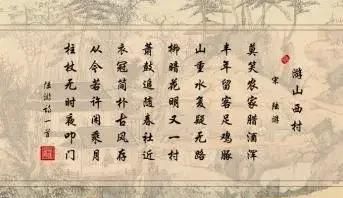 游山西村
宋 陆游
莫笑农家腊酒浑
丰年留客足鸡豚
山重水复疑无路
柳暗花明又一村
萧鼓追随春社近
衣冠简朴古风存
从今若许闲乘月
柱杖无时夜叩门
陆游诗一首